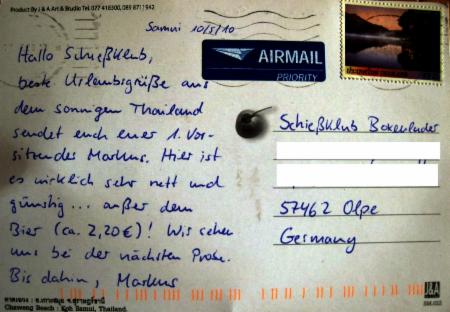 Product By J & A Art & Studio Tel. 077 418300, 089 8711942
Samui 10/5/10
Hallo Schießklub,
beste Urlaubsgrüße aus
dem sonnigen Thailand
sendet euch euer 1. Vor-
sitzender Markus. Hier ist
es wirklich sehr nett und
günstig... außer dem
Bier (ca. 2,20€)! Wir sehen
uns bei der nächsten Probe.
Bis dahin, Markus
J & A
AIRMAIL
PRIORITY
Schießklub Boxenluder
57462 Olpe
Germany
Chaweng Beach : Koh Samui, Thailand.
J&A